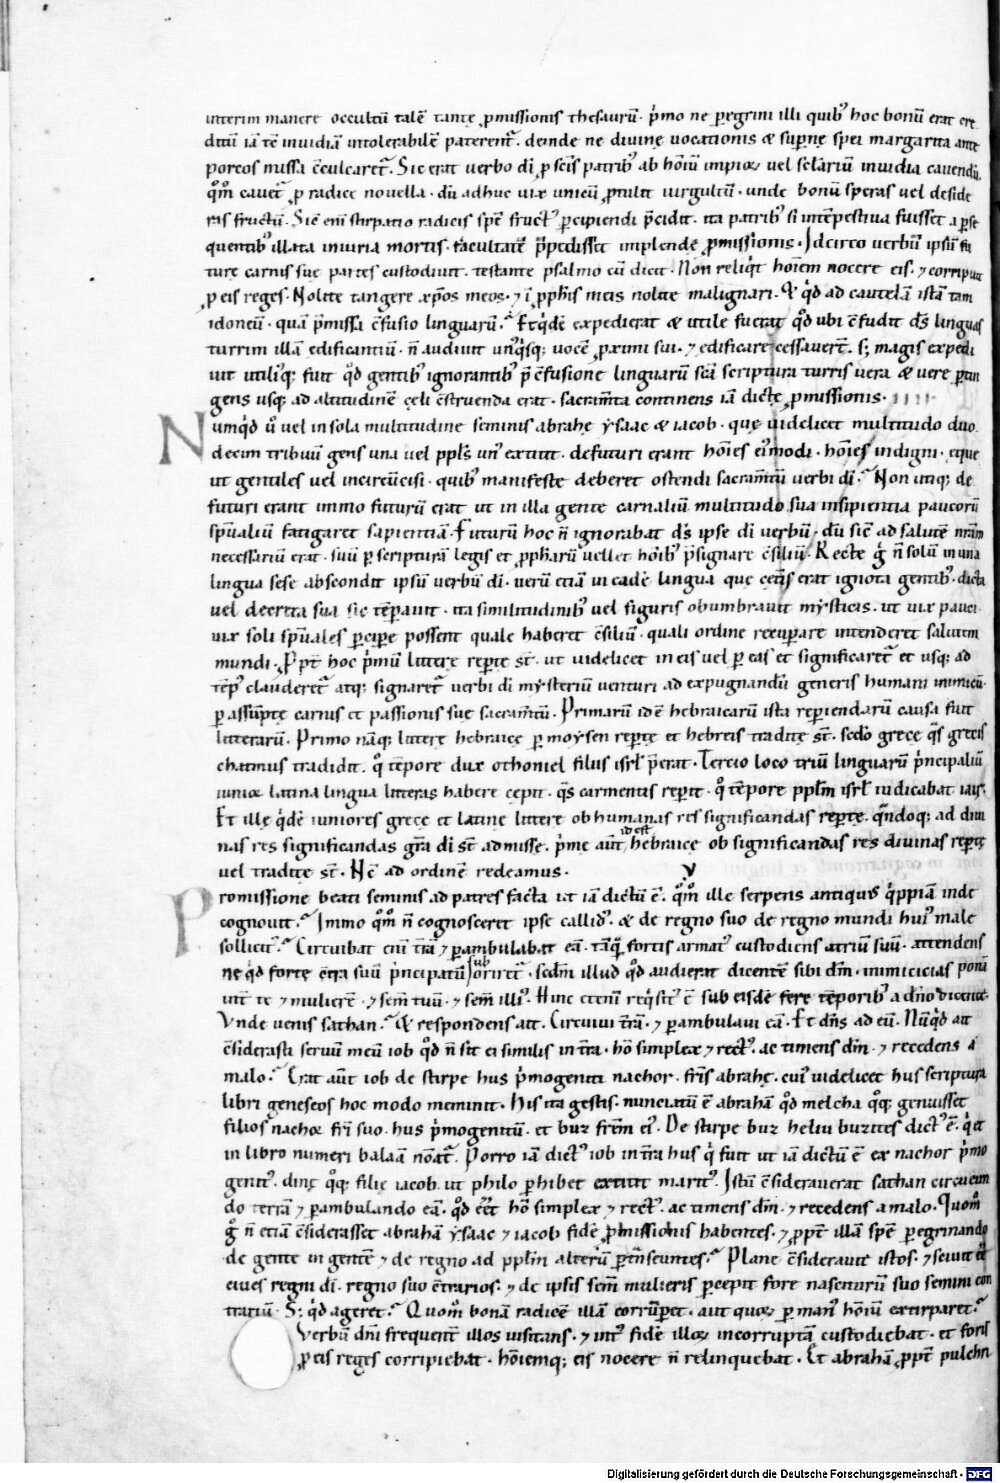 interim manere occultū talē tantę ꝓmissionis thesaurū. p̍mo ne peregrini illi quib᷒ hoc bonū erat cre
ditū iā tē inuidiā intolerabilē paterent̄. deinde ne diuinę uocationis & supnę spei margarita ante
porcos missa c̄culcaret̄. Sic erat uerbo di ꝓ sc̄is patrib᷒ ab hoīū impioꝝ uel scelariū inuidia cauendū.
qm̄ cauet̄ ꝓ radice nouella. dū adhuc uix unicū ꝓtulit uirgultū. unde bonū speras uel deside
ras fructū. Sic̄ eni stirpatio radicis spē fruct᷒ ꝑcipiendi p̄cidit. ita patrib᷒ si intēpestiua fuisset a ꝑse
quentib᷒ illata iniuria mortis. facultatē p̄pedisset implendę ꝓmissionis. Idcirco uerbū ipsū fu
turę carnis suę partes custodiuit. testante psalmo cū dicit. Non reliq̍t hoīem nocere eis. ⁊ corripuit
ꝓ eis reges. Nolite tangere xp̄os meos. ⁊ ī ꝓph̄is meis nolite malignari. & qd̍ ad cautelā istā tam
idoneū. quā p̄missa c̄fusio linguarū. Et qd̄ē expedierat & utile fuerat qd̍ ubi c̄fudit d̄s linguas
turrim illā edificantiū. n̄ audiuit unq̍sq; uocē ꝓximi sui. ⁊ edificare cessauert̄. s; magis expedi
uit utiliq; fuit qd̍ gentib᷒ ignorantib᷒ p̄ c̄fusione linguarū sc̄a scriptura turris uera & uere ꝑtin
gens usq; ad altitudinē cęli c̄struenda erat. sacram̄ta continens iā dictę ꝓmissionis. IIII.
Numqd̍ ū uel in sola multitudine seminis abrahę ysaac & iacob. quę uidelicet multitudo duo
decim tribuū gens una uel ppl̄s un᷒ extitit. defuturi erant hoīes ei᷒modi. hoīes indigni. ęque
ut gentiles uel incircūcisi. quib᷒ manifeste deberet ostendi sacram̄tū uerbi di. Non utiq; de
futuri erant immo futurū erat ut in illa gente carnaliū multitudo sua insipientia paucorū
sp̄ualiū fatigaret sapientiā. Futurū hoc n̄ ignorabat d̄s ipse di uerbū. dū sic̄ ad salutē nr̄am
necessariū erat. suū ꝑ scripturā legis et ꝓph̄arū uellet hoīb᷒ p̄signare c̄siliū. Recte g̍ n̄ solū in una
lingua sese abscondit ipsū uerbū di. uerū etiā in eadē lingua que cęt̄is erat ignota gentib᷒. dicta
uel decreta sua sic tēpauit. ita similitudinib᷒ uel figuris obumbrauit mysticis. ut uix pauci
uix soli sp̄uales ꝑcipe possent quale haberet c̄siliū. quali ordine recupare intenderet salutem
mundi. Propt̄ hoc p̍mū litterę repte st̄. ut uidelicet in eis uel ꝑ eas et significaret̄ et usq; ad
tēp᷒ clauderet̄ atq; signaret̄ uerbi di mysteriū uenturi ad expugnandū generis humani inimicū.
ꝑ assūptę carnis et passionis suę sacram̄tū. Primarū idē hebraicarū ista repiendarū causa fuit
litterarū. Primo nāq; litterę hebraicę ꝑ moysen reptę et hebreis traditę st̄. sec̄do grecę qs̄ grecis
chatmus tradidit. q̊ tēpore dux othoniel filius isrl̄ p̄erat. Tercio loco triū linguarū p̍ncipaliū
iunior latina lingua litteras habere cępit. qs̄ carmentis repit. q̊ tēpore ppl̄m isrl̄ iudicabat iair.
Et illę qd̄ē iuniores grecę et latinę litterę ob humanas res significandas reptę. qn̄doq; ad diui
nas res significandas gr̄a di st̄ admisse. p̍mę aut̄ id est hebraicę ob significandas res diuinas reptę
uel traditę st̄. Nc̄ ad ordinē redeamus. V
Promissione beati seminis ad patres facta ut iā dictū ē. qm̄ ille serpens antiquus q̍ppiā inde
cognouit. Immo qm̄ n̄ cognosceret ipse callid᷒. & de regno suo de regno mundi hui᷒ male
sollicit᷒. Circuibat eni tr̄a ⁊ ꝑambulabat eā. tāq̄ fortis armat᷒ custodiens atriū suū. attendens
ne qd̍ forte c̄tra suū p̍ncipatū sub oriret̄. sc̄dm illud qd̍ audierat dicentē sibi dm̄. inimicicias ponā
int̄ te ⁊ mulierē. ⁊ sem̄ tuū. ⁊ sem̄ illi᷒. Hinc etenī req̍sit᷒ ē sub eisdē fere tēporib᷒ a dn̄o dicente.
Vnde uenis sathan. & respondens ait. Circuiui tr̄ā. ⁊ ꝑambulaui eā. Et dn̄s ad eū. Nūqd̍ ait
c̄siderasti seruū meū iob qd̍ n̄ sit ei similis in tr̄a. hō simplex ⁊ rect᷒. ac timens dm̄. ⁊ recedens a
malo. Erat aut̄ iob de stirpe hus p̍mogeniti nachor. fr̄is abrahę. cui᷒ uidelicet hus scriptura
libri geneseos hoc modo meminit. His ita gestis. nunciatū ē abrahā qd̍ melcha qq; genuisset
filios nachor fr̄i suo. hus p̍mogenitū. et buz fr̄em ei᷒. De stirpe buz heliu buzites dict᷒ ē. q̍ et
in libro numeri balaā noīat̄. Porro iā dict᷒ iob in tr̄a hus q̍ fuit ut iā dictū ē ex nachor p̍mo
genit᷒. dinę qq; filię iacob. ut philo ꝑhibet extitit marit᷒. Istū c̄siderauerat sathan circueun
do terrā ⁊ ꝑambulando eā. qd̍ eēt hō simplex ⁊ rect᷒. ac timens dm̄. ⁊ recedens a malo. Quom̊
g̍ n̄ etiā c̄siderasset abrahā ysaac ⁊ iacob fidē ꝓmissionis habentes. ⁊ ꝓpt̄ illā spē peregrinando
de gente in gentē ⁊ de regno ad ppl̄m alterū ꝑtr̄nseuntes. Plane c̄siderauit istos. ⁊ sciuit eē
ciues regni di. regno suo c̄trarios. ⁊ de ipsis sem̄ mulieris ꝑcepit fore nasciturū suo semini con
trariū. S; qd̍ ageret. Quom̊ bonā radicē illā corrūpet. aut quoꝝ ꝑ man᷒ hoīū extirparet.
Verbū dni frequent̄ illos uisitans. ⁊ int᷒ fidē illoꝝ incorruptā custodiebat. et foris
ꝓ eis reges corripiebat. hoīemq; eis nocere n̄ relinquebat. Et abrahā ꝓpt̄ pulchri
Digitalisierung gefördert durch die Deutsche Forschungsgemeinschaft - DFG